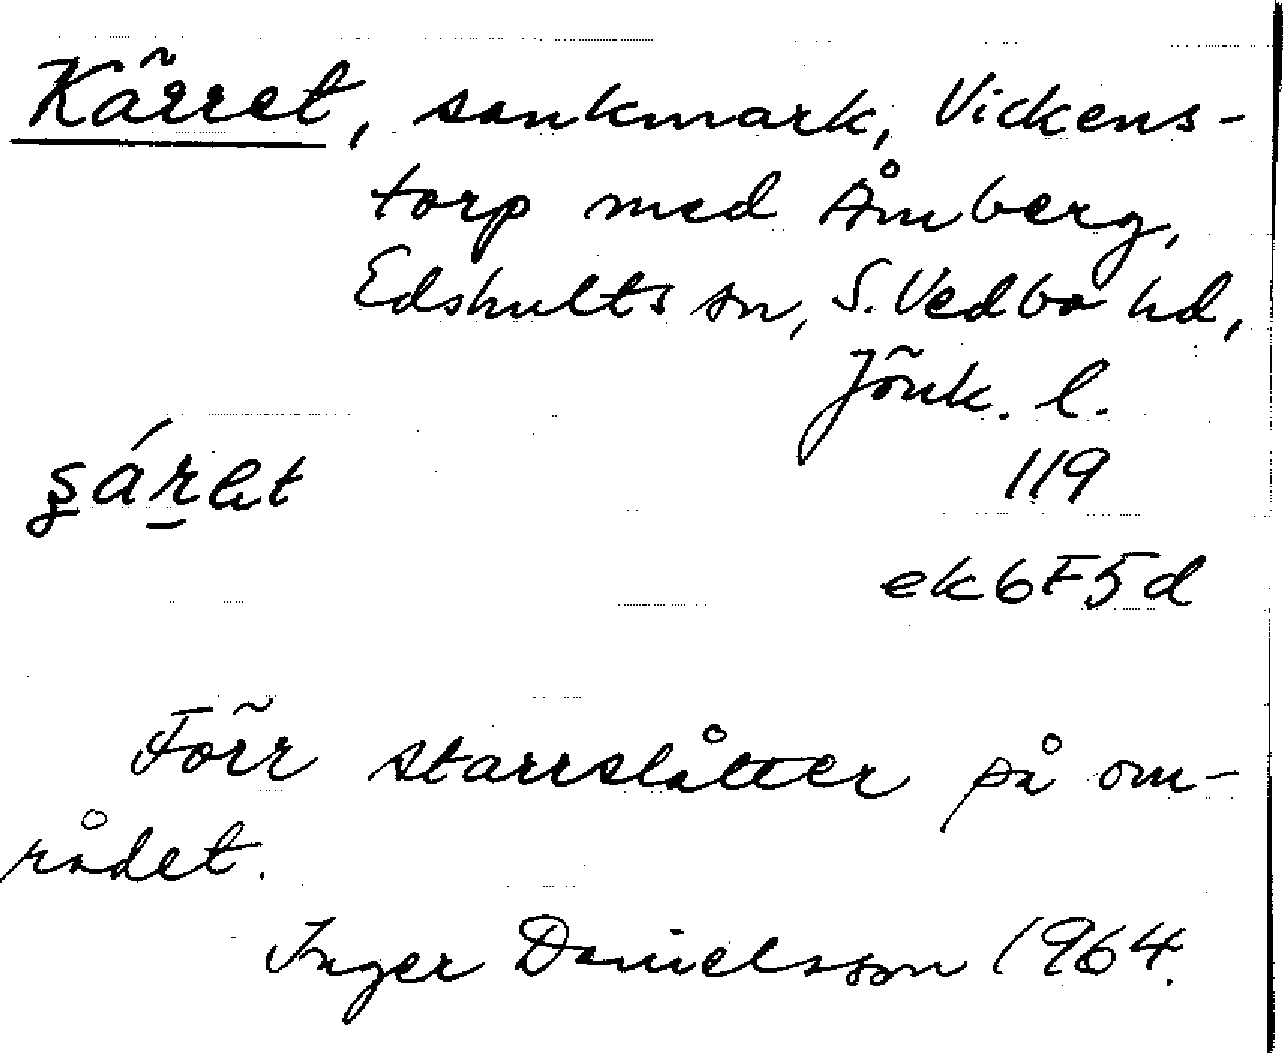 Kärret, sankmark, Vickens-
torp med Åmberg,
Edshults sn, S. Vedbo hd,
Jönk. l.
119
ek6F5d
Förr starrslåtter på om-
rådet.
Inger Danielsson 1964.